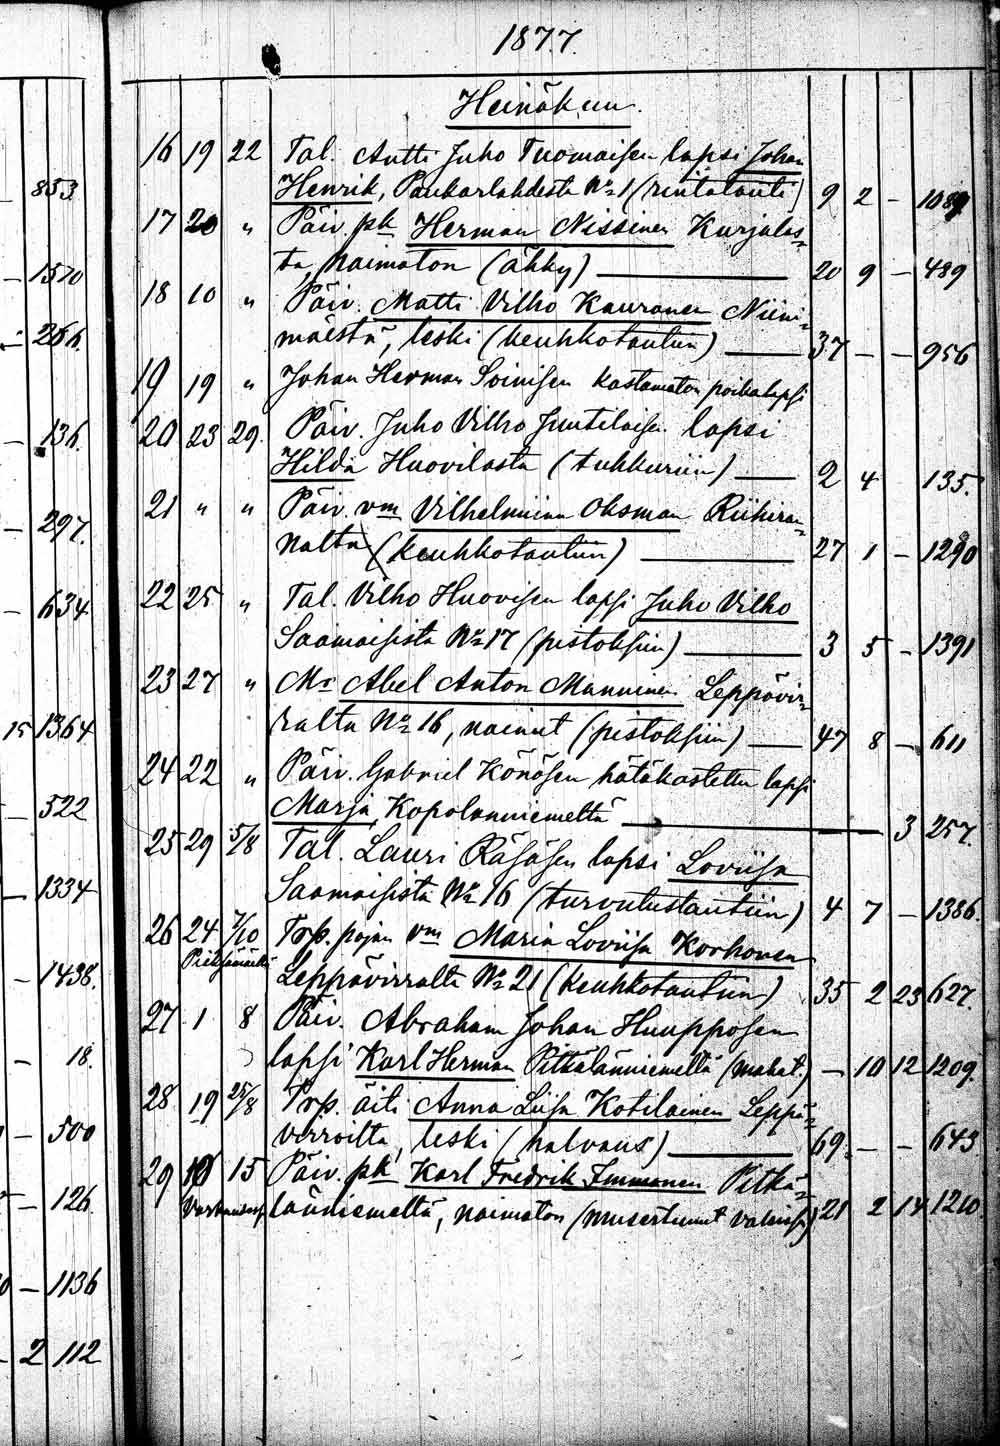 1877.
Heinäkuu.
16 19 22 Tal. Antti Juho Tuomaisen lapsi Johan
853 Henrik, Paukarlahdesta No 1 (rintatauti) 9 2 - 1089
17 20 " Päiv. pk Herman Nissinen Kurjalas=
1570 ta, naimaton (ähky) 20 9 - 489
18 10 " Päiv. Matti Vilho Kauranen Niini=
266. mäestä, leski (keuhkotautiin) 37 - - 956
19 19 " Johan Herman Soinisen kastamaton poikalapsi
136. 20 23 29. Päiv. Juho Vilho Juutilaisen lapsi
Hilda Huovilasta (tuhkuriin) 2 4 135.
21 " " Päiv. vm Vilhelmiina Oksman Riihiran=
297. nalta (keuhkotautiin) 27 1 - 1290
634. 22 25 " Tal. Vilho Huovisen lapsi Juho Vilho
Saamaisista No 17 (pistoksiin) 3 5 - 1391
23 27 " Mr Abel Anton Manninen Leppävir=
15 1364. ralta No 16, nainut (pistoksiin) 47 8 - 611
24 22 " Päiv. Gabriel Könösen hätäkastettu lapsi
522 Marja, Kopolanniemeltä 3 257.
25 29 5/8 Tal. Lauri Räsäsen lapsi Loviisa
1334 Saamaisista No 16 (turvutustautiin) 4 7 - 1386.
26 24 7/10 Trp. pojan vm Maria Loviisa Korhonen
1438. Pieksämäellä Leppävirralta No 21 (keuhkotautiin) 35 2 23 627.
27 1 8 Päiv. Abraham Johan Huupposen
18. lapsi Karl Herman Pitkälänniemeltä (mahat.) - 10 12 1209.
28 19 25/8 Trp. äiti Anna Liisa Kotilainen Leppä=
500 virroilta, leski (halvaus) 69. - - 643
29 16 15 Päiv. pk Karl Fredrik Immonen Pitkä=
126. länniemeltä, naimaton (musertunut 21 2 14 1210.
1136
2 112